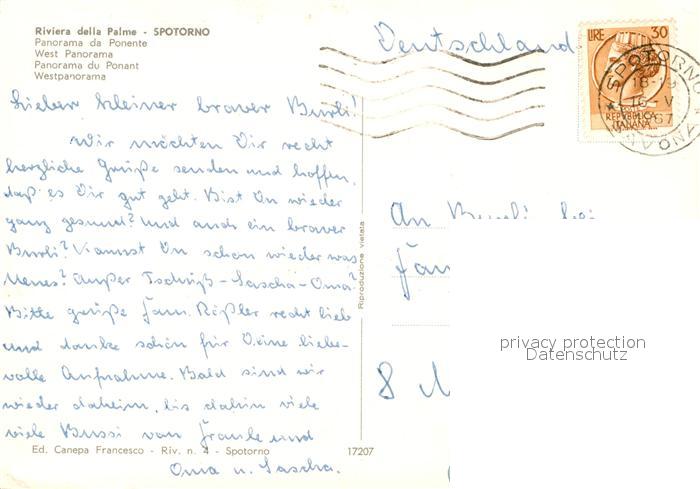 Riviera della Palme - SPOTORNO
Panorama da Ponente
West Panorama
Panorama du Ponant
Westpanorama
Deutschland
LIRE 30
REPVBBLICA
ITALIANA
SPOTORNO
18-19
16 V
67
Lieber kleiner braver Burli!
Wir möchten Dir recht
herzliche Grüße senden und hoffen,
daß es Dir gut geht. Bist Du wieder
ganz gesund? Und auch ein braver
Burli? Kannst Du schon wieder was
Neues? Außer Tschüß-Sascha-Oma?
Bitte grüße Fam. Rößler recht lieb
und danke schön für Deine liebe-
volle Aufnahme. Bald sind wir
wieder daheim, bis dahin viele
viele Bussi von Frauke und
Oma u. Sascha.
Ed. Canepa Francesco - Riv. n. 4 - Spotorno 17207
Riproduzione vietata
An Burli bei
Fam
8 M
privacy protection
Datenschutz